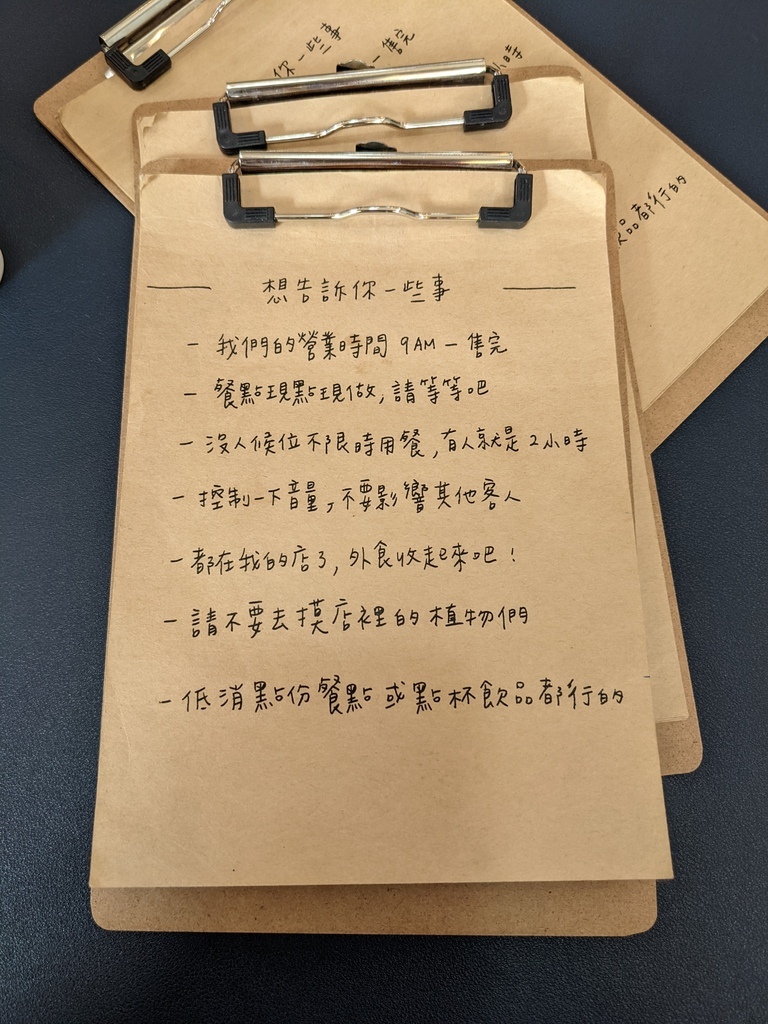 你一些事
- 售完
小時
飲品都行的
想告訴你一些事
- 我們的營業時間 9AM - 售完
- 餐點現點現做, 請等等吧
- 沒人候位不限時用餐, 有人就是 2小時
- 控制一下音量, 不要影響其他客人
- 都在我的店了, 外食收起來吧!
- 請不要去摸店裡的植物們
- 低消點份餐點 或點杯飲品都行的